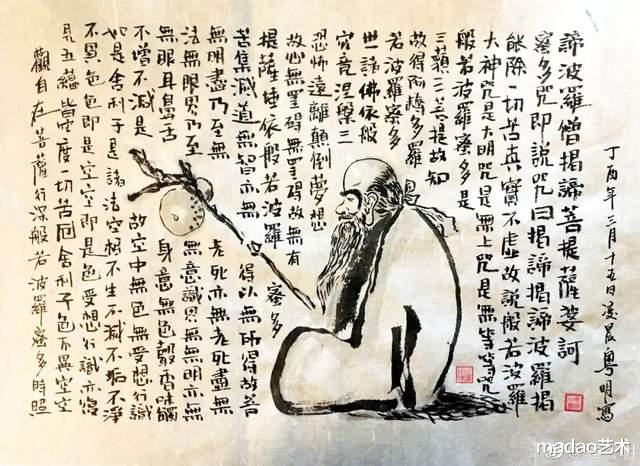 觀自在菩薩行深般若波羅蜜多時照
見五蘊皆空度一切苦厄舍利子色不異空空
不異色色即是空空即是色受想行識亦復
如是舍利子是諸法空相不生不滅不垢不淨
不增不減是故空中無色無受想行識
無眼耳鼻舌身意無色聲香味觸
法無眼界乃至無意識界無無明亦無
無明盡乃至無老死亦無老死盡無
苦集滅道無智亦無得以無所得故菩
提薩埵依般若波羅蜜多
故心無罣礙無罣礙故無有
恐怖遠離顛倒夢想
究竟涅槃三
世諸佛依般
若波羅蜜多
故得阿耨多羅
三藐三菩提故知
般若波羅蜜多是
大神咒是大明咒是無上咒是無等等咒
能除一切苦真實不虛故說般若波羅
蜜多咒即說咒曰揭諦揭諦波羅揭
諦波羅僧揭諦菩提薩婆訶
丁酉年三月十五日凌晨粵明寫
madao艺术